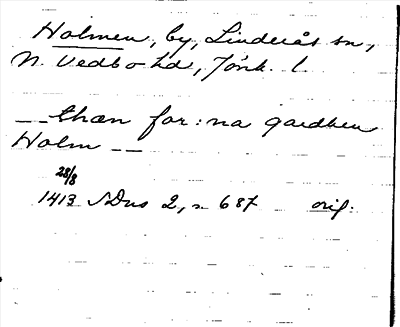 Holmen, by, Linderås sn,
N. Vedbo hd, Jönk. l.
— — thæn for:na gardhen
Holm — —
28/8
1413 SDns 2, n 687 orig.